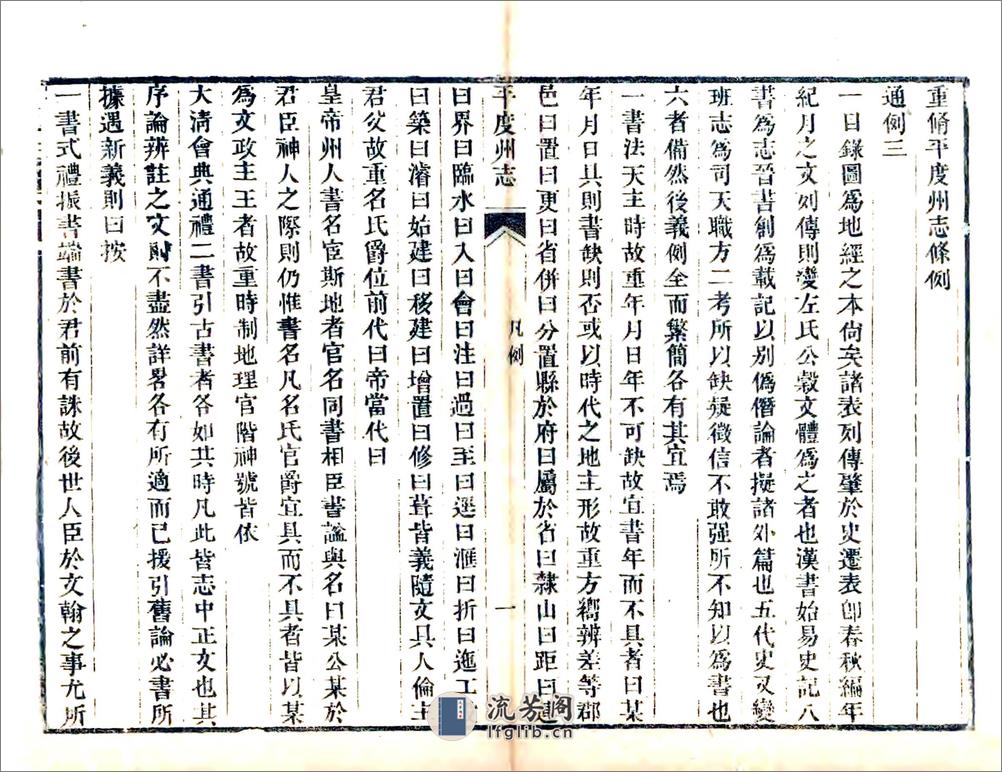 重脩平度州志條例
通例三
一目錄圖爲地經之本尚矣諸表列傳肇於史遷表卽春秋編年
紀月之文列傳則變左氏公穀文體爲之者也漢書始易史記八
書爲志晉書創爲載記以別僞僭論者擬諸外篇也五代史又變
班志爲司天職方二考所以缺疑徵信不敢强所不知以爲書也
六者備然後義例全而繁簡各有其宜焉
一書法天主時故重年月日年不可缺故宜書年而不具者曰某
年月日具則書缺則否或以時代之地主形故重方嚮辨差等郡
邑曰置曰更曰省併曰分置縣於府曰屬於省曰隸山曰距曰連
平度州志
凡例
一
曰界曰臨水曰入曰會曰注曰過曰至曰逕曰滙曰折曰迤工
曰築曰濬曰始建曰移建曰增置曰修曰葺皆義隨文具人倫主
君父故重名氏爵位前代曰帝當代曰
皇帝州人書名宦斯地者官名同書相臣書謚與名曰某公某於
君臣神人之際則仍惟書名凡名氏官爵宜具而不具者皆以某
爲文政主王者故重時制地理官階神號皆依
大清會典通禮二書引古書者各如其時凡此皆志中正文也其
序論辨註之文則不盡然詳畧各有所適而已援引舊論必書所
據遇新義則曰按
一書式禮振書端書於君前有誅故後世人臣於文翰之事尤所
流芳阁
lfglib.cn